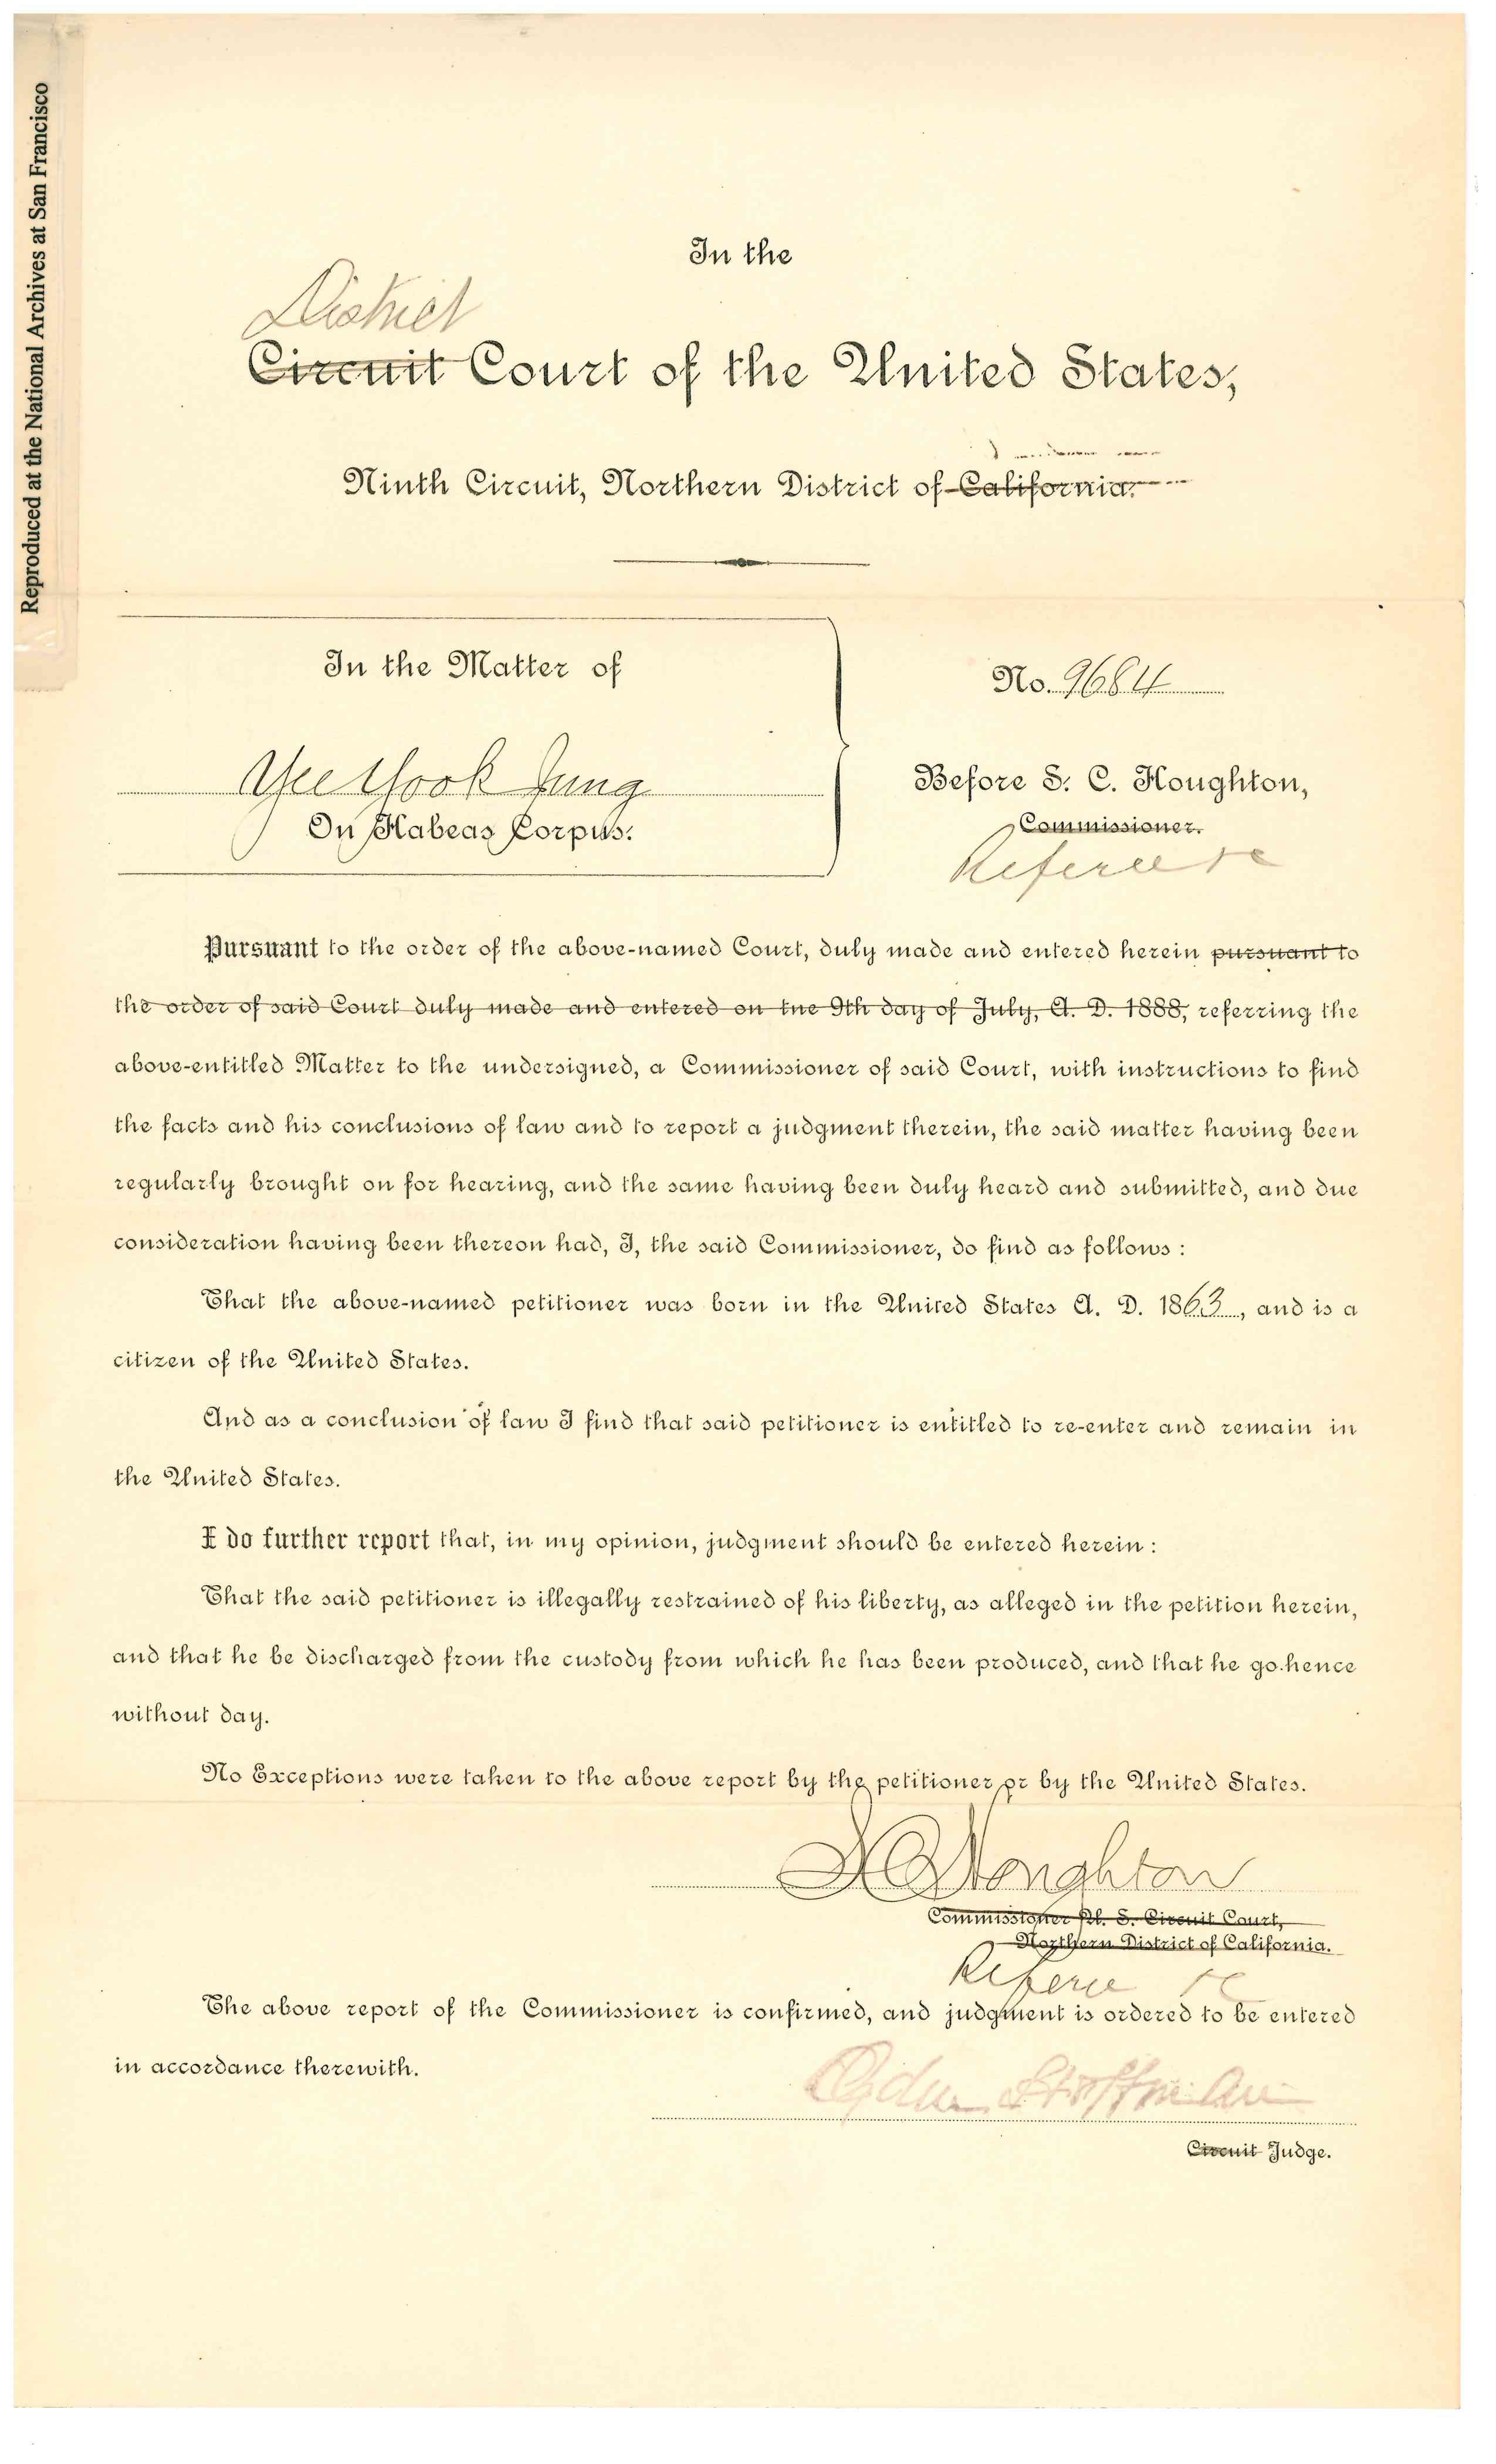 Reproduced at the National Archives at San Francisco
In the
District
Circuit Court of the United States,
Ninth Circuit, Northern District of California.
In the Matter of
No. 9684
Yee Yook Jung
On Habeas Corpus.
Before S. C. Houghton,
Commissioner.
Referee
Pursuant to the order of the above-named Court, duly made and entered herein pursuant to
the order of said Court duly made and entered on tne 9th day of July, A. D. 1888, referring the
above-entitled Matter to the undersigned, a Commissioner of said Court, with instructions to find
the facts and his conclusions of law and to report a judgment therein, the said matter having been
regularly brought on for hearing, and the same having been duly heard and submitted, and due
consideration having been thereon had, I, the said Commissioner, do find as follows :
That the above-named petitioner was born in the United States A. D. 1863, and is a
citizen of the United States.
And as a conclusion of law I find that said petitioner is entitled to re-enter and remain in
the United States.
I do further report that, in my opinion, judgment should be entered herein :
That the said petitioner is illegally restrained of his liberty, as alleged in the petition herein,
and that he be discharged from the custody from which he has been produced, and that he go hence
without day.
No Exceptions were taken to the above report by the petitioner or by the United States.
S C Houghton
Commissioner U. S. Circuit Court,
Northern District of California.
Referee
The above report of the Commissioner is confirmed, and judgment is ordered to be entered
in accordance therewith.
Ogden Hoffman
Circuit Judge.